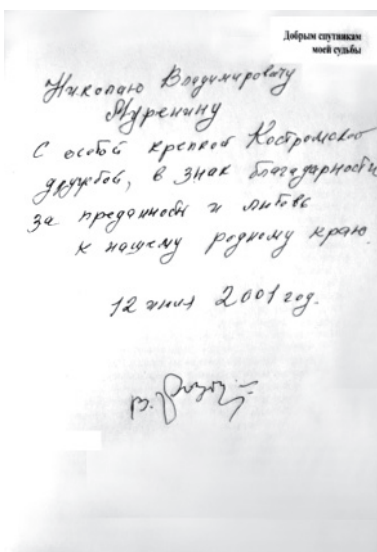 Добрым спутникам
моей судьбы
Николаю Владимировичу
Муренину
С особой крепкой Костромской
дружбой, в знак благодарности
за преданность и любовь
к нашему родному краю.
12 июня 2001 год.
В.